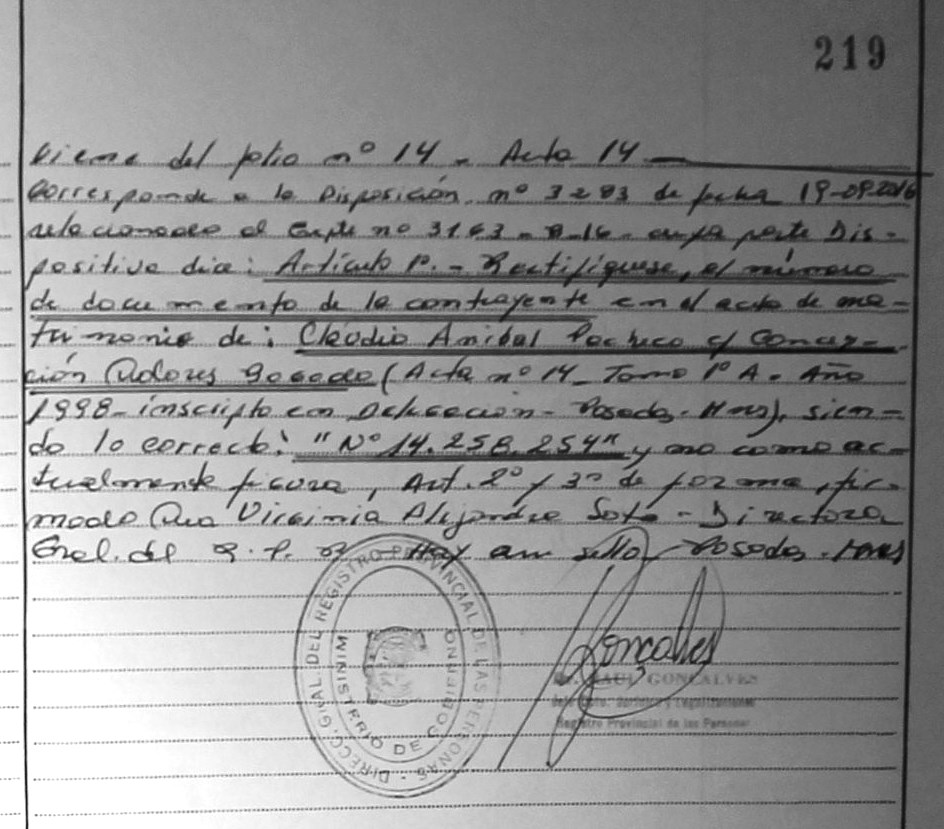 219
Viene del folio nº 14 - Acta 14
Corresponde a la Disposición nº 3283 de fecha 19-09-2016
relacionado al Expte nº 3163-8-16- cuya parte Dis-
positiva dice: Artículo 1º.- Rectifíquese, el número
de documento de la contrayente en el acta de ma-
trimonio de: Claudio Anibal Pacheco c/ Concep-
ción Dolores (Acta nº 14 - Tomo 1º A - Año
1998 - inscripto en Delegación - Posadas - Mnes), sien-
do lo correcto: "Nº 14.258.254" y no como ac-
tualmente figura, Art. 2º y 3º de forma, fir-
mado Dra Virginia Alejandra Soto - Directora
Gral. del R. P. Hay un sello Posadas - Mnes
DIRECC. GRAL. DEL REGISTRO PROVINCIAL DE LAS PERSONAS
MINISTERIO DE GOBIERNO
Goncalves
RAUL GONCALVES
Registro Provincial de las Personas